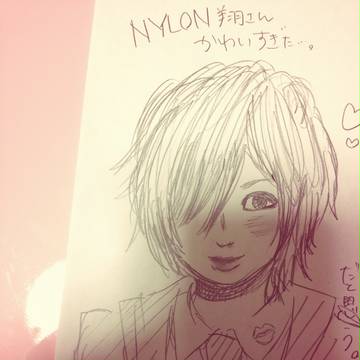 NYLON翔さん
かわいすぎだ…。
だと思う。